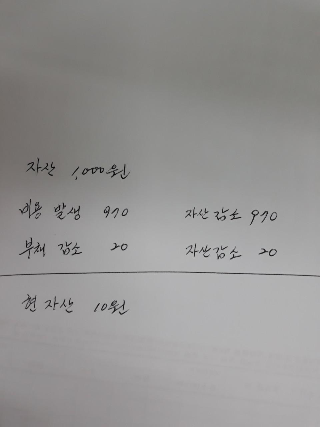 자산 1,000원
비용 발생 970 자산감소 970
부채 감소 20 자산감소 20
현 자산 10원